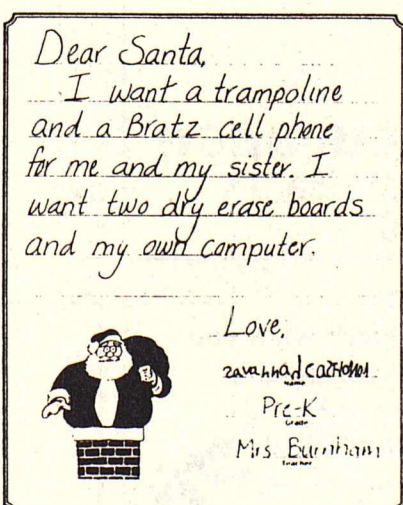 Dear Santa,
I want a trampoline
and a Bratz cell phone
for me and my sister. I
want two dry erase boards
and my own computer.
Love,
Name
Pre-K
Grade
Mrs. Burnham
Teacher